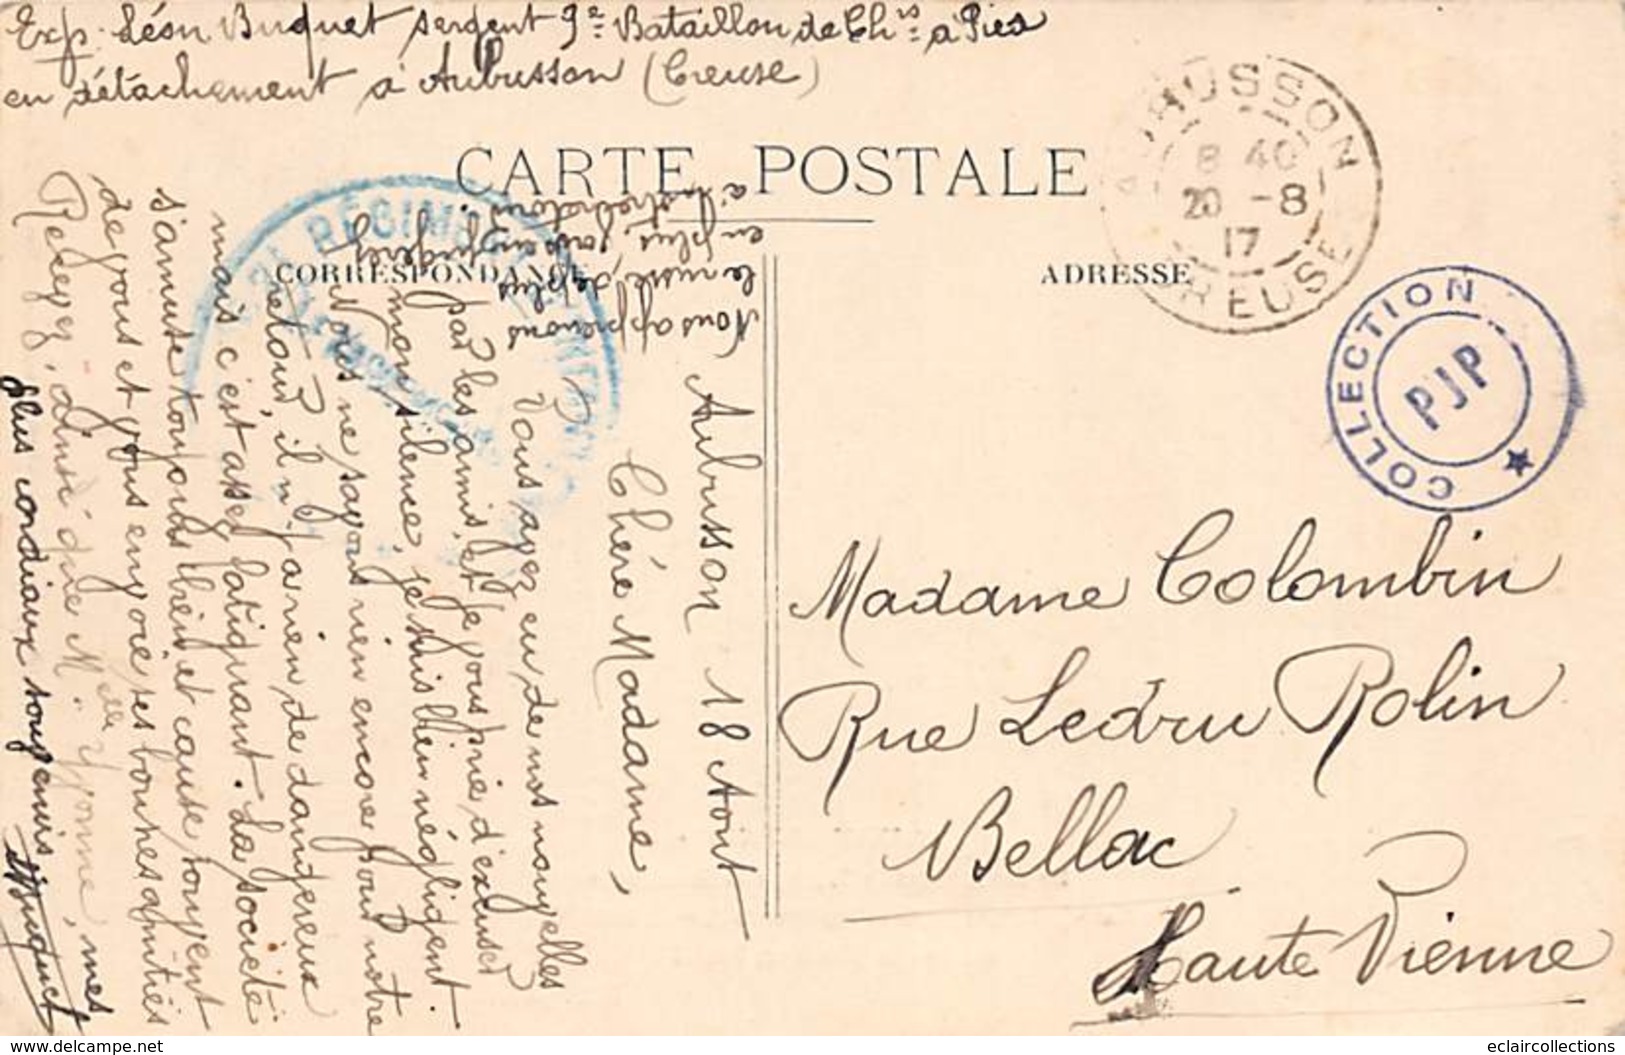 Exp. Léon Buquet sergent 9e Bataillon de Chrs à Pied
en détachement à Aubusson (Creuse)
CARTE POSTALE
CORRESPONDANCE
ADRESSE
AUBUSSON
8 40
20 -8
17
CREUSE
COLLECTION
PJP
RÉGIMENT
Aubusson 18 Août
Chère Madame,
Vous avez eu de nos nouvelles
par les amis, et je vous prie d'excuser
mon silence, je suis bien négligent.
Nous ne savons rien encore pour notre
retour, il n'y a rien de dangereux
mais c'est assez fatiguant. La société
s'amuse toujours bien et cause souvent
de vous et vous envoie ses bonnes amitiés
Recevez, ainsi que Melle Yvonne, mes
plus cordiaux souvenirs
LBuquet
Nous apprenons
le russe, de plus
en plus, vous en jugerez
à notre retour.
Madame Colombin
Rue Ledru Rolin
Bellac
Haute Vienne
www.delcampe.net
eclaircollections